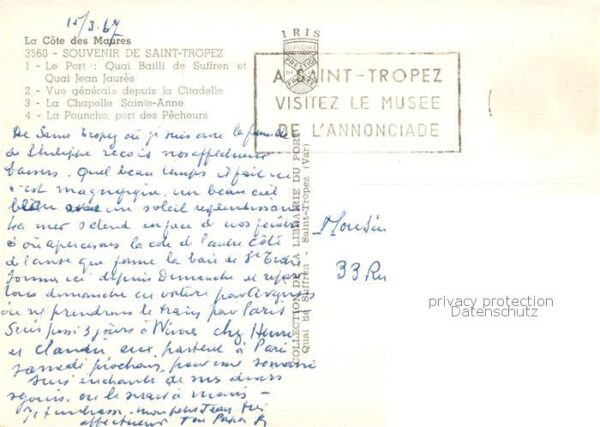 15/3.67
La Côte des Maures
3560 - SOUVENIR DE SAINT-TROPEZ
1 - Le Port : Quai Bailli de Suffren et
Quai Jean Jaurès
2 - Vue générale depuis la Citadelle
3 - La Chapelle Sainte-Anne
4 - La Pouncho, port des Pêcheurs
IRIS
DIPLOME
PRESTIGE
A SAINT-TROPEZ
VISITEZ LE MUSEE
DE L'ANNONCIADE
COLLECTION DE LA LIBRAIRIE DU PORT
Quai de Suffren - Saint-Tropez (Var)
De Saint Tropez où je suis avec la famille
de Philippe reçois nos affectueux
baisers. Quel beau temps il fait ici
c'est magnifique un beau ciel
bleu avec un soleil resplendissant
La mer s'étend en face de nos fenêtres
d'où apercevons la côte de l'autre côté
de l'anse que forme la baie de St Tropez
Sommes ici depuis Dimanche et
tous dimanche en voiture pour Avignon
où reprendrons le train pour Paris
Suis passé 3 jours à chez Henri
et Claudie eux partent à Paris
samedi prochain pour une semaine
Suis enchanté de mes divers
séjours
Je t'embrasse mon petit Jean très
affectueusement Ton Papa
33 Ru
privacy protection
Datenschutz